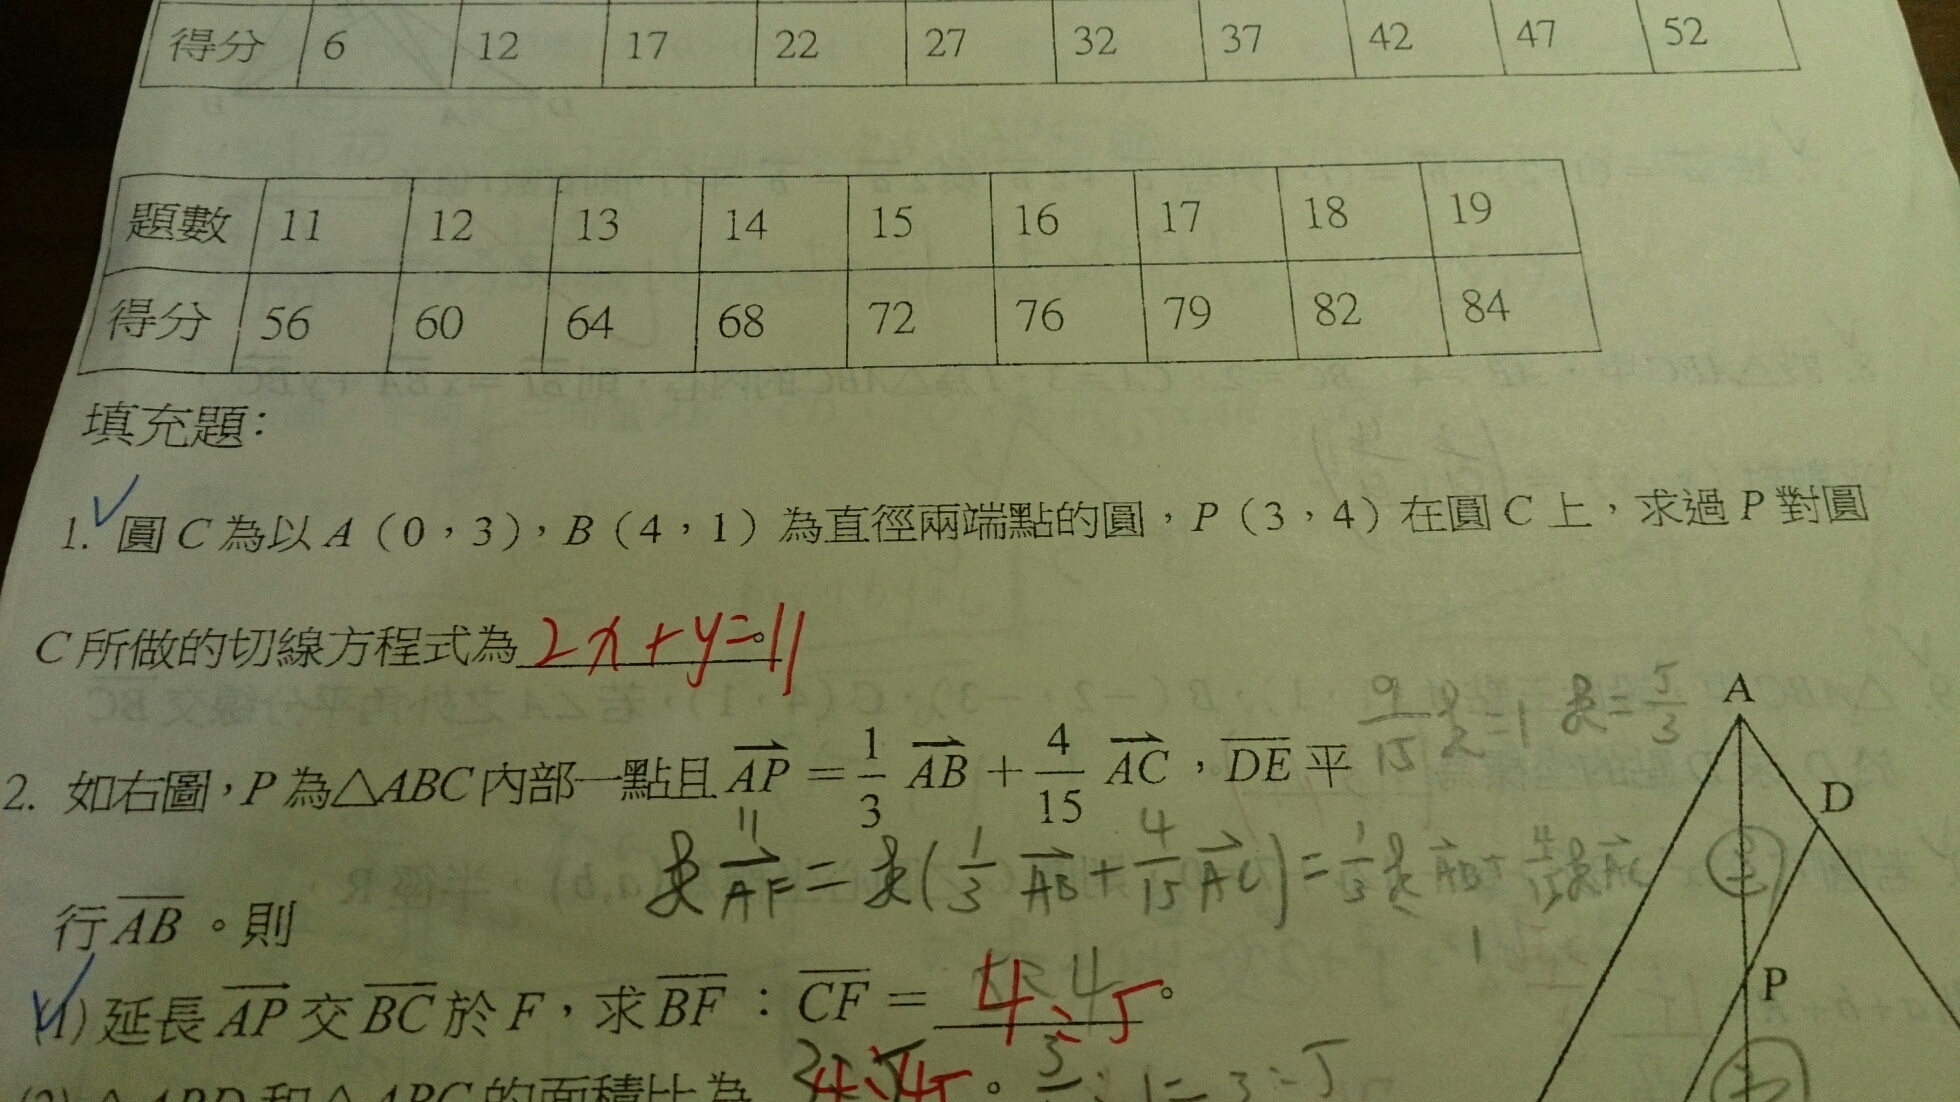 得分 6 12 17 22 27 32 37 42 47 52
題數 11 12 13 14 15 16 17 18 19
得分 56 60 64 68 72 76 79 82 84
填充題:
1. 圓 C 為以 A（0，3），B（4，1）為直徑兩端點的圓，P（3，4）在圓 C 上，求過 P 對圓
C 所做的切線方程式為 2x+y=11。
9/15 k=1 k=5/3
2. 如右圖，P 為△ABC 內部一點且 AP = 1/3 AB + 4/15 AC，DE 平
k AF = k(1/3 AB + 4/15 AC) = 1/3 k AB + 4/15 k AC
行 AB。則
(1) 延長 AP 交 BC 於 F，求 BF：CF = 4:5。
(2) △APD 和△ABC 的面積比為 4:45。
3:5
A
D
P